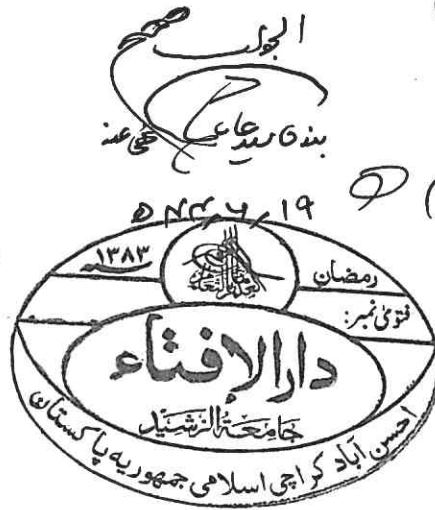 الجواب صحیح
بندہ سید عابد عفی عنہ
رمضان ۱۳۸۳ھ
فتویٰ نمبر:
دار الإفتاء
جَامِعَةُ الرَّشِيْد
احسن آباد کراچی اسلامی جمہوریہ پاکستان